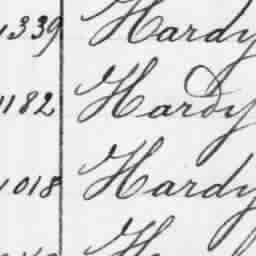 1339 Hardy
1182 Hardy
1018 Hardy